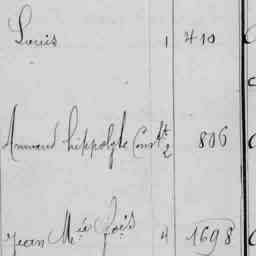 Louis 1 410
Armand hippolyte Const 2 806
Jean Mie fois 4 1698